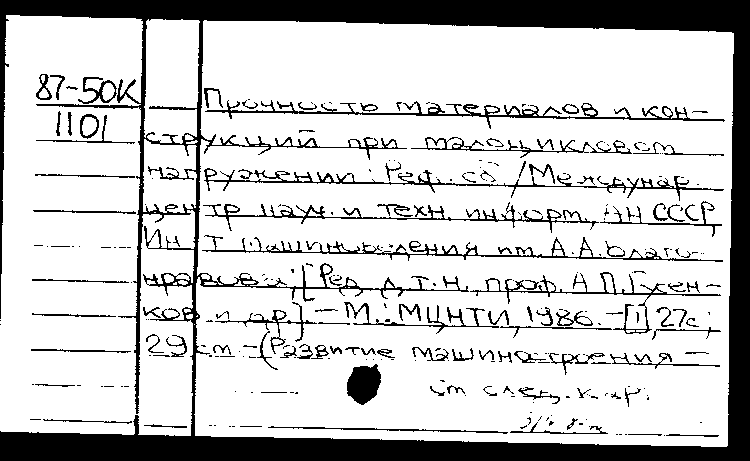 87-50К
1101
Прочность материалов и кон-
струкций при малоцикловом
нагружении: Реф. сб / Междунар.
центр науч. и техн. информ., АН СССР,
Ин-т машиноведения им. А.А. Благо-
нравова; [Ред. д.т.н., проф. А.П. Гусен-
ков и др.] - М.: МЦНТИ, 1986. - [1], 27с;
29 см - (Развитие машиностроения -
см след. к-р.